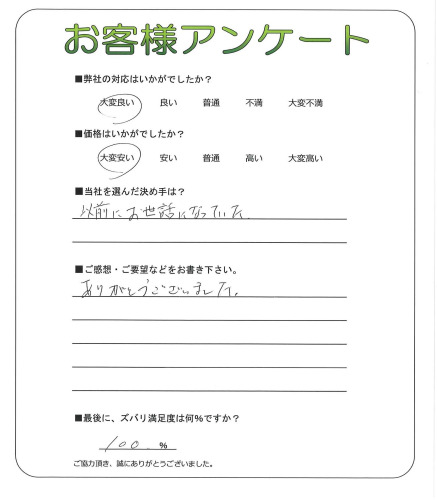 お客様アンケート
■弊社の対応はいかがでしたか?
大変良い 良い 普通 不満 大変不満
■価格はいかがでしたか?
大変安い 安い 普通 高い 大変高い
■当社を選んだ決め手は?
以前にお世話になっていた
■ご感想・ご要望などをお書き下さい。
ありがとうございました。
■最後に、ズバリ満足度は何%ですか?
100 %
ご協力頂き、誠にありがとうございました。